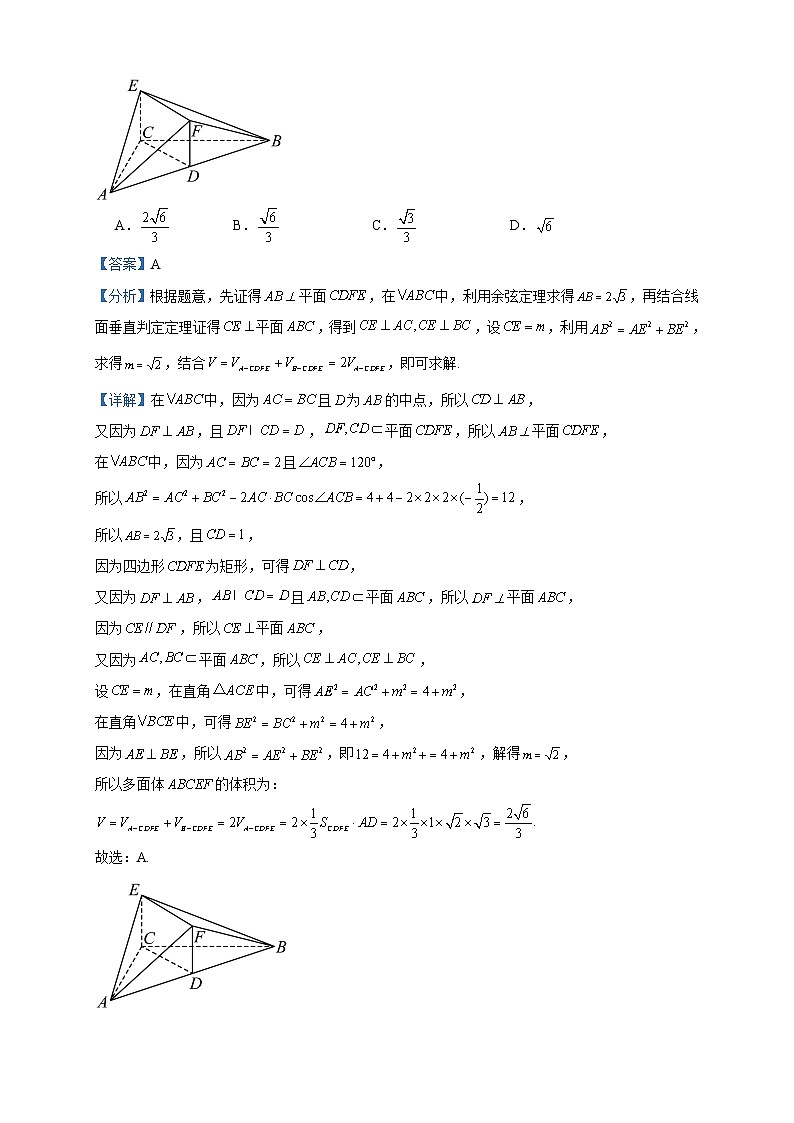 E
C
F
B
D
A
A. 2√6/3 B. √6/3 C. √3/3 D. √6
【答案】A
【分析】根据题意，先证得AB⊥平面CDFE，在VABC中，利用余弦定理求得AB=2√3，再结合线
面垂直判定定理证得CE⊥平面ABC，得到CE⊥AC,CE⊥BC，设CE=m，利用AB²=AE²+BE²，
求得m=√2，结合V=V_{A-CDFE}+V_{B-CDFE}=2V_{A-CDFE}，即可求解.
【详解】在VABC中，因为AC=BC且D为AB的中点，所以CD⊥AB，
又因为DF⊥AB，且DF I CD=D，DF,CD⊂平面CDFE，所以AB⊥平面CDFE，
在VABC中，因为AC=BC=2且∠ACB=120°，
所以AB²=AC²+BC²-2AC·BC cos∠ACB=4+4-2×2×2×(-1/2)=12，
所以AB=2√3，且CD=1，
因为四边形CDFE为矩形，可得DF⊥CD，
又因为DF⊥AB，AB I CD=D且AB,CD⊂平面ABC，所以DF⊥平面ABC，
因为CE//DF，所以CE⊥平面ABC，
又因为AC,BC⊂平面ABC，所以CE⊥AC,CE⊥BC，
设CE=m，在直角△ACE中，可得AE²=AC²+m²=4+m²，
在直角VBCE中，可得BE²=BC²+m²=4+m²，
因为AE⊥BE，所以AB²=AE²+BE²，即12=4+m²+=4+m²，解得m=√2，
所以多面体ABCEF的体积为：
V=V_{A-CDFE}+V_{B-CDFE}=2V_{A-CDFE}=2×1/3 S_{CDFE}·AD=2×1/3×1×√2×√3=2√6/3.
故选：A.
E
C
F
B
D
A